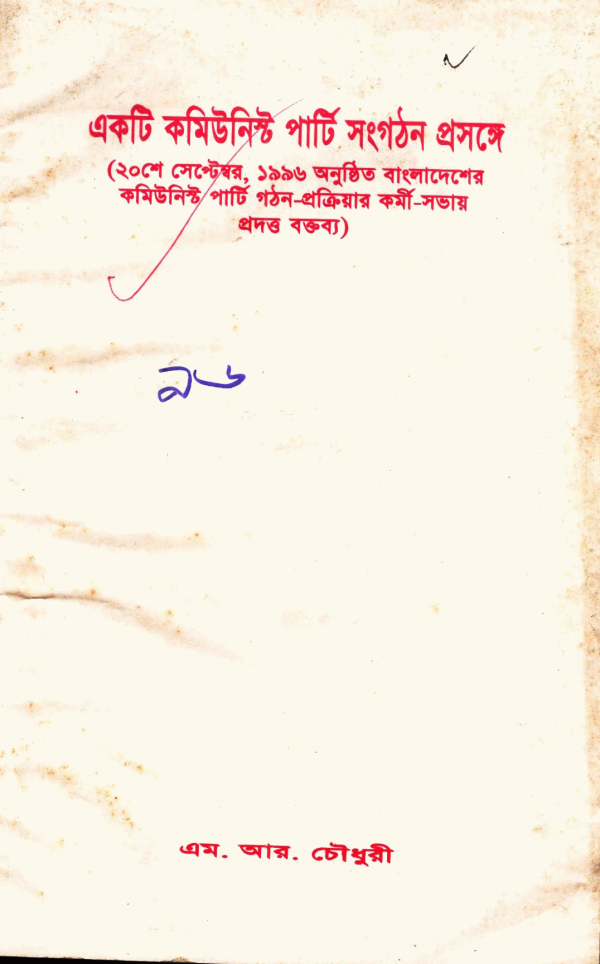 একটি কমিউনিস্ট পার্টি সংগঠন প্রসঙ্গে
(২০শে সেপ্টেম্বর, ১৯৯৬ অনুষ্ঠিত বাংলাদেশের
কমিউনিস্ট পার্টি গঠন-প্রক্রিয়ার কর্মী-সভায়
প্রদত্ত বক্তব্য)
৯৬
এম. আর. চৌধুরী